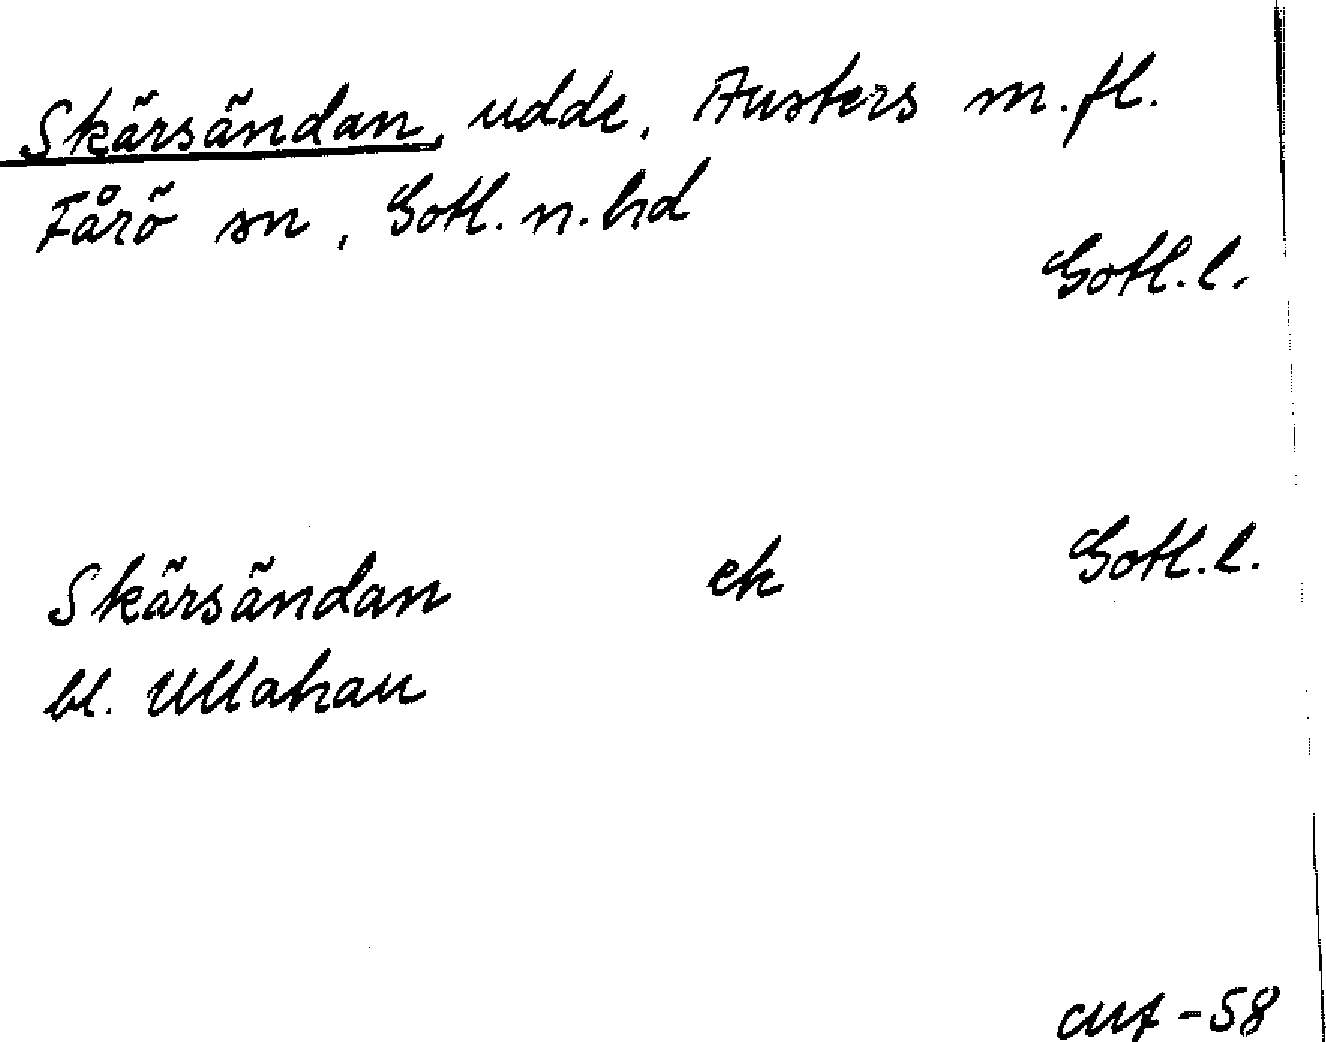 Skärsändan, udde, Austers m.fl.
Fårö sn, Gotl. n. hd
Gotl.l.
Skärsändan ek Gotl.l.
bl. Ullahau
-58